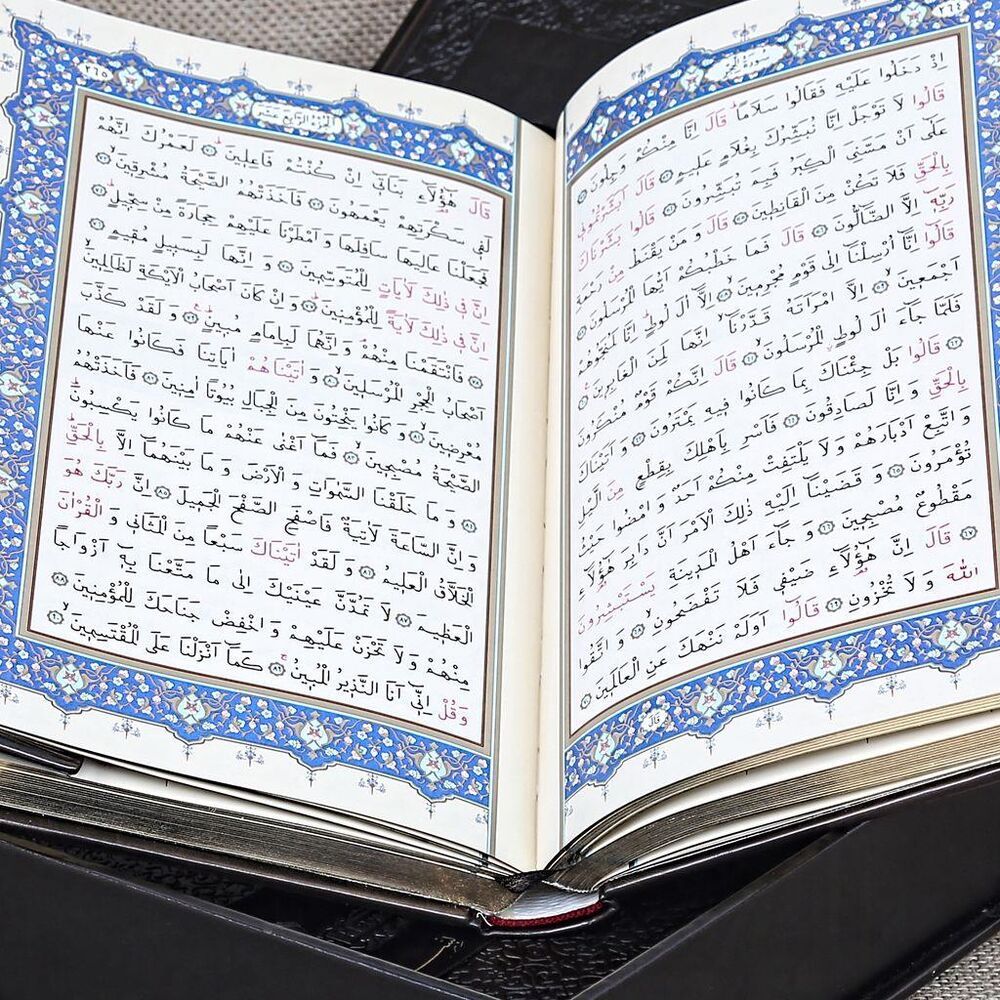 ٢٦٤
سورة الحجر
اِذْ دَخَلُوا عَلَيْهِ فَقَالُوا سَلَامًاۜ قَالَ اِنَّا مِنْكُمْ وَجِلُونَ ٥٢
قَالُوا لَا تَوْجَلْ اِنَّا نُبَشِّرُكَ بِغُلَامٍ عَلِيمٍ ٥٣ قَالَ اَبَشَّرْتُمُونِي
عَلٰٓى اَنْ مَسَّنِيَ الْكِبَرُ فَبِمَ تُبَشِّرُونَ ٥٤ قَالُوا بَشَّرْنَاكَ
بِالْحَقِّ فَلَا تَكُنْ مِنَ الْقَانِطِينَ ٥٥ قَالَ وَمَنْ يَقْنَطُ مِنْ رَحْمَةِ
رَبِّهٖٓ اِلَّا الضَّٓالُّونَ ٥٦ قَالَ فَمَا خَطْبُكُمْ اَيُّهَا الْمُرْسَلُونَ ٥٧
قَالُٓوا اِنَّٓا اُرْسِلْنَٓا اِلٰى قَوْمٍ مُجْرِمِينَ ٥٨ اِلَّٓا اٰلَ لُوطٍ اِنَّا لَمُنَجُّوهُمْ
اَجْمَعِينَ ٥٩ اِلَّا امْرَاَتَهُ قَدَّرْنَٓا اِنَّهَا لَمِنَ الْغَابِرِينَ ٦٠
فَلَمَّا جَٓاءَ اٰلَ لُوطٍ الْمُرْسَلُونَ ٦١ قَالَ اِنَّكُمْ قَوْمٌ مُنْكَرُونَ
٦٢ قَالُوا بَلْ جِئْنَاكَ بِمَا كَانُوا فِيهِ يَمْتَرُونَ ٦٣ وَاَتَيْنَاكَ
بِالْحَقِّ وَاِنَّا لَصَادِقُونَ ٦٤ فَاَسْرِ بِاَهْلِكَ بِقِطْعٍ مِنَ الَّيْلِ
وَاتَّبِعْ اَدْبَارَهُمْ وَلَا يَلْتَفِتْ مِنْكُمْ اَحَدٌ وَامْضُوا حَيْثُ
تُؤْمَرُونَ ٦٥ وَقَضَيْنَٓا اِلَيْهِ ذٰلِكَ الْاَمْرَ اَنَّ دَابِرَ هٰٓؤُ۬لَٓاءِ
مَقْطُوعٌ مُصْبِحِينَ ٦٦ وَجَٓاءَ اَهْلُ الْمَدِينَةِ يَسْتَبْشِرُونَ
٦٧ قَالَ اِنَّ هٰٓؤُ۬لَٓاءِ ضَيْفِي فَلَا تَفْضَحُونِ ٦٨ وَاتَّقُوا
اللّٰهَ وَلَا تُخْزُونِ ٦٩ قَالُٓوا اَوَلَمْ نَنْهَكَ عَنِ الْعَالَمِينَ ٧٠
قَالَ
٢٦٥
الجزء الرابع عشر
قَالَ هٰٓؤُ۬لَٓاءِ بَنَاتٖٓي اِنْ كُنْتُمْ فَاعِلِينَۜ ٧١ لَعَمْرُكَ اِنَّهُمْ
لَفِي سَكْرَتِهِمْ يَعْمَهُونَ ٧٢ فَاَخَذَتْهُمُ الصَّيْحَةُ مُشْرِقِينَ ٧٣
فَجَعَلْنَا عَالِيَهَا سَافِلَهَا وَاَمْطَرْنَا عَلَيْهِمْ حِجَارَةً مِنْ سِجِّيلٍ ٧٤
اِنَّ فِي ذٰلِكَ لَاٰيَاتٍ لِلْمُتَوَسِّمِينَ ٧٥ وَاِنَّهَا لَبِسَبِيلٍ مُقِيمٍ ٧٦
اِنَّ فِي ذٰلِكَ لَاٰيَةً لِلْمُؤْمِنِينَ ٧٧ وَاِنْ كَانَ اَصْحَابُ الْاَيْكَةِ لَظَالِمِينَ
٧٨ فَانْتَقَمْنَا مِنْهُمْۢ وَاِنَّهُمَا لَبِاِمَامٍ مُبِينٍ ٧٩ وَلَقَدْ كَذَّبَ
اَصْحَابُ الْحِجْرِ الْمُرْسَلِينَ ٨٠ وَاٰتَيْنَاهُمْ اٰيَاتِنَا فَكَانُوا عَنْهَا
مُعْرِضِينَ ٨١ وَكَانُوا يَنْحِتُونَ مِنَ الْجِبَالِ بُيُوتًا اٰمِنِينَ ٨٢ فَاَخَذَتْهُمُ
الصَّيْحَةُ مُصْبِحِينَ ٨٣ فَمَٓا اَغْنٰى عَنْهُمْ مَا كَانُوا يَكْسِبُونَ
٨٤ وَمَا خَلَقْنَا السَّمٰوَاتِ وَالْاَرْضَ وَمَا بَيْنَهُمَٓا اِلَّا بِالْحَقِّ
وَاِنَّ السَّاعَةَ لَاٰتِيَةٌ فَاصْفَحِ الصَّفْحَ الْجَمِيلَ ٨٥ اِنَّ رَبَّكَ هُوَ
الْخَلَّاقُ الْعَلِيمُ ٨٦ وَلَقَدْ اٰتَيْنَاكَ سَبْعًا مِنَ الْمَثَانِي وَالْقُرْاٰنَ
الْعَظِيمَ ٨٧ لَا تَمُدَّنَّ عَيْنَيْكَ اِلٰى مَا مَتَّعْنَا بِهٖٓ اَزْوَاجًا
مِنْهُمْ وَلَا تَحْزَنْ عَلَيْهِمْ وَاخْفِضْ جَنَاحَكَ لِلْمُؤْمِنِينَ ٨٨
وَقُلْ اِنّٖٓي اَنَا النَّذِيرُ الْمُبِينُ ٨٩ كَمَٓا اَنْزَلْنَا عَلَى الْمُقْتَسِمِينَ ٩٠